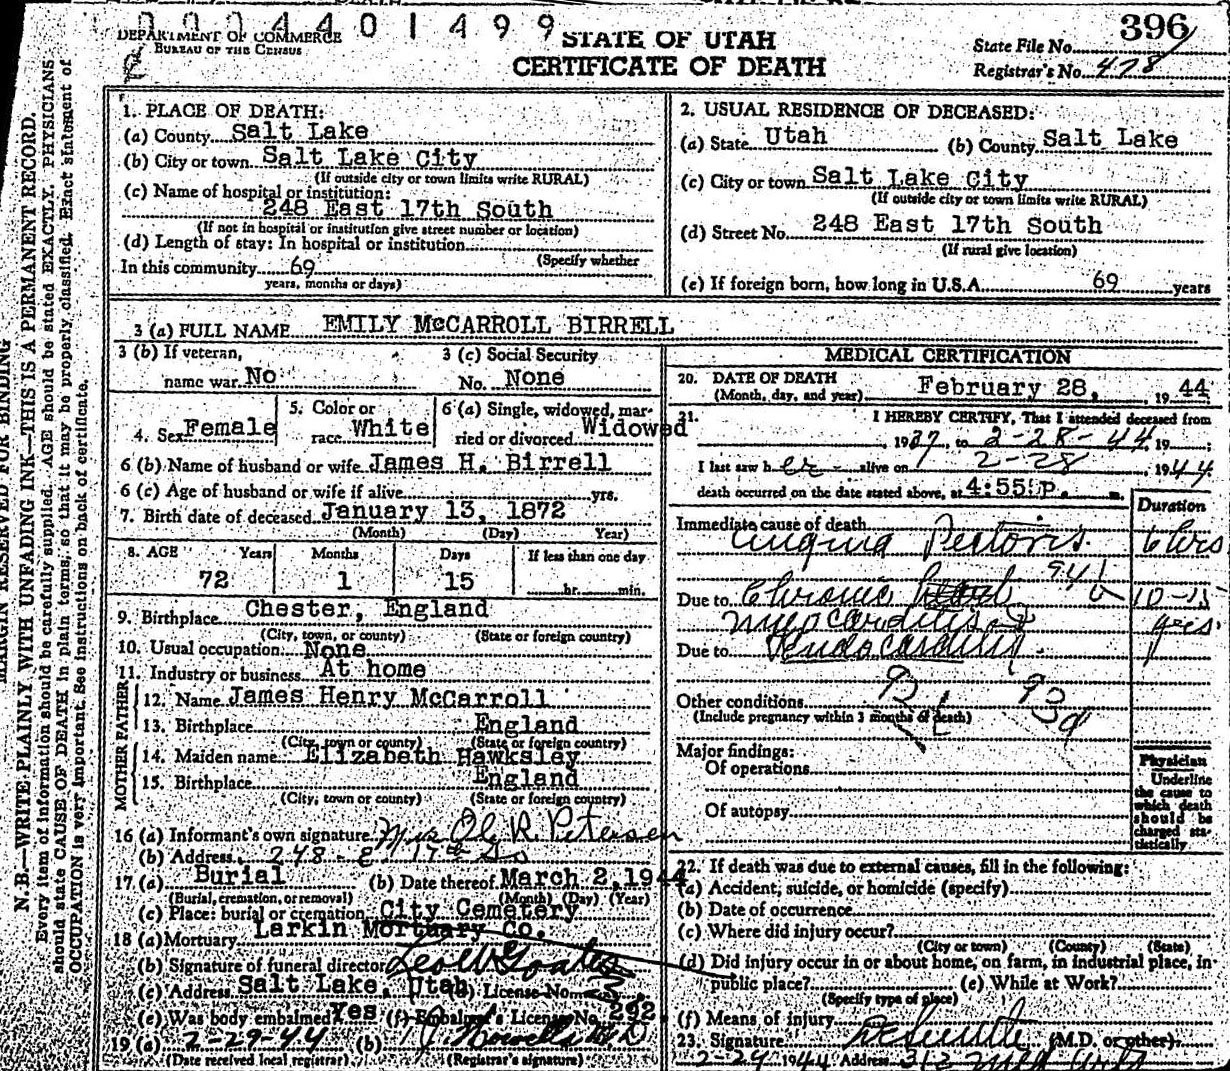 0004401499
DEPARTMENT OF COMMERCE
BUREAU OF THE CENSUS
STATE OF UTAH
CERTIFICATE OF DEATH
396
State File No.
Registrar's No. 478
MARGIN RESERVED FOR BINDING
N. B.—WRITE PLAINLY WITH UNFADING INK—THIS IS A PERMANENT RECORD.
Every item of information should be carefully supplied. AGE should be stated EXACTLY. PHYSICIANS
should state CAUSE OF DEATH in plain terms, so that it may be properly classified. Exact statement of
OCCUPATION is very important. See instructions on back of certificate.
1. PLACE OF DEATH:
(a) County Salt Lake
(b) City or town Salt Lake City
(If outside city or town limits write RURAL)
(c) Name of hospital or institution:
248 East 17th South
(If not in hospital or institution give street number or location)
(d) Length of stay: In hospital or institution
(Specify whether
In this community 69
years, months or days)
2. USUAL RESIDENCE OF DECEASED:
(a) State Utah (b) County Salt Lake
(c) City or town Salt Lake City
(If outside city or town limits write RURAL)
(d) Street No. 248 East 17th South
(If rural give location)
(e) If foreign born, how long in U.S.A. 69 years
3 (a) FULL NAME EMILY McCARROLL BIRRELL
3 (b) If veteran,
name war No
3 (c) Social Security
No. None
4. Sex Female
5. Color or
race White
6 (a) Single, widowed, mar-
ried or divorced Widowed
6 (b) Name of husband or wife James H. Birrell
6 (c) Age of husband or wife if alive yrs.
7. Birth date of deceased January 13, 1872
(Month) (Day) Year)
8. AGE Years Months Days If less than one day
72 1 15 hr. min.
9. Birthplace Chester, England
(City, town, or county) (State or foreign country)
10. Usual occupation None
11. Industry or business At home
FATHER
12. Name James Henry McCarroll
13. Birthplace England
(City, town or county) (State or foreign country)
MOTHER
14. Maiden name Elizabeth Hawksley
15. Birthplace England
(City, town or county) (State or foreign country)
16 (a) Informant's own signature Mrs R. Petersen
(b) Address 248 - E 17th So
17 (a) Burial (b) Date thereof March 2, 1944
(Burial, cremation, or removal) (Month) (Day) (Year)
(c) Place: burial or cremation City Cemetery
18 (a) Mortuary Larkin Mortuary Co.
(b) Signature of funeral director
(c) Address Salt Lake, Utah (d) License No.
(e) Was body embalmed? Yes (f) Embalmer's License No. 292
19 (a) 2-29-44 (b)
(Date received local registrar) (Registrar's signature)
MEDICAL CERTIFICATION
20. DATE OF DEATH February 28, 1944
(Month, day, and year)
21. I HEREBY CERTIFY, That I attended deceased from
1937, to 2-28-44 19
I last saw her alive on 2-28 1944
death occurred on the date stated above, at 4:55 P. m.
Duration
Immediate cause of death
Angina Pectoris 6 hrs
94 b
Due to Chronic 10-15
Myocarditis & yrs.
Due to Endocarditis
Other conditions 93d
(Include pregnancy within 3 months of death)
Major findings:
Of operations
Of autopsy
Physician
Underline
the cause to
which death
should be
charged sta-
tistically
22. If death was due to external causes, fill in the following:
(a) Accident, suicide, or homicide (specify)
(b) Date of occurrence
(c) Where did injury occur?
(City or town) (County) (State)
(d) Did injury occur in or about home, on farm, in industrial place, in
public place? (e) While at Work?
(Specify type of place)
(f) Means of injury
23. Signature (M.D. or other)
2-29 1944 Address 312